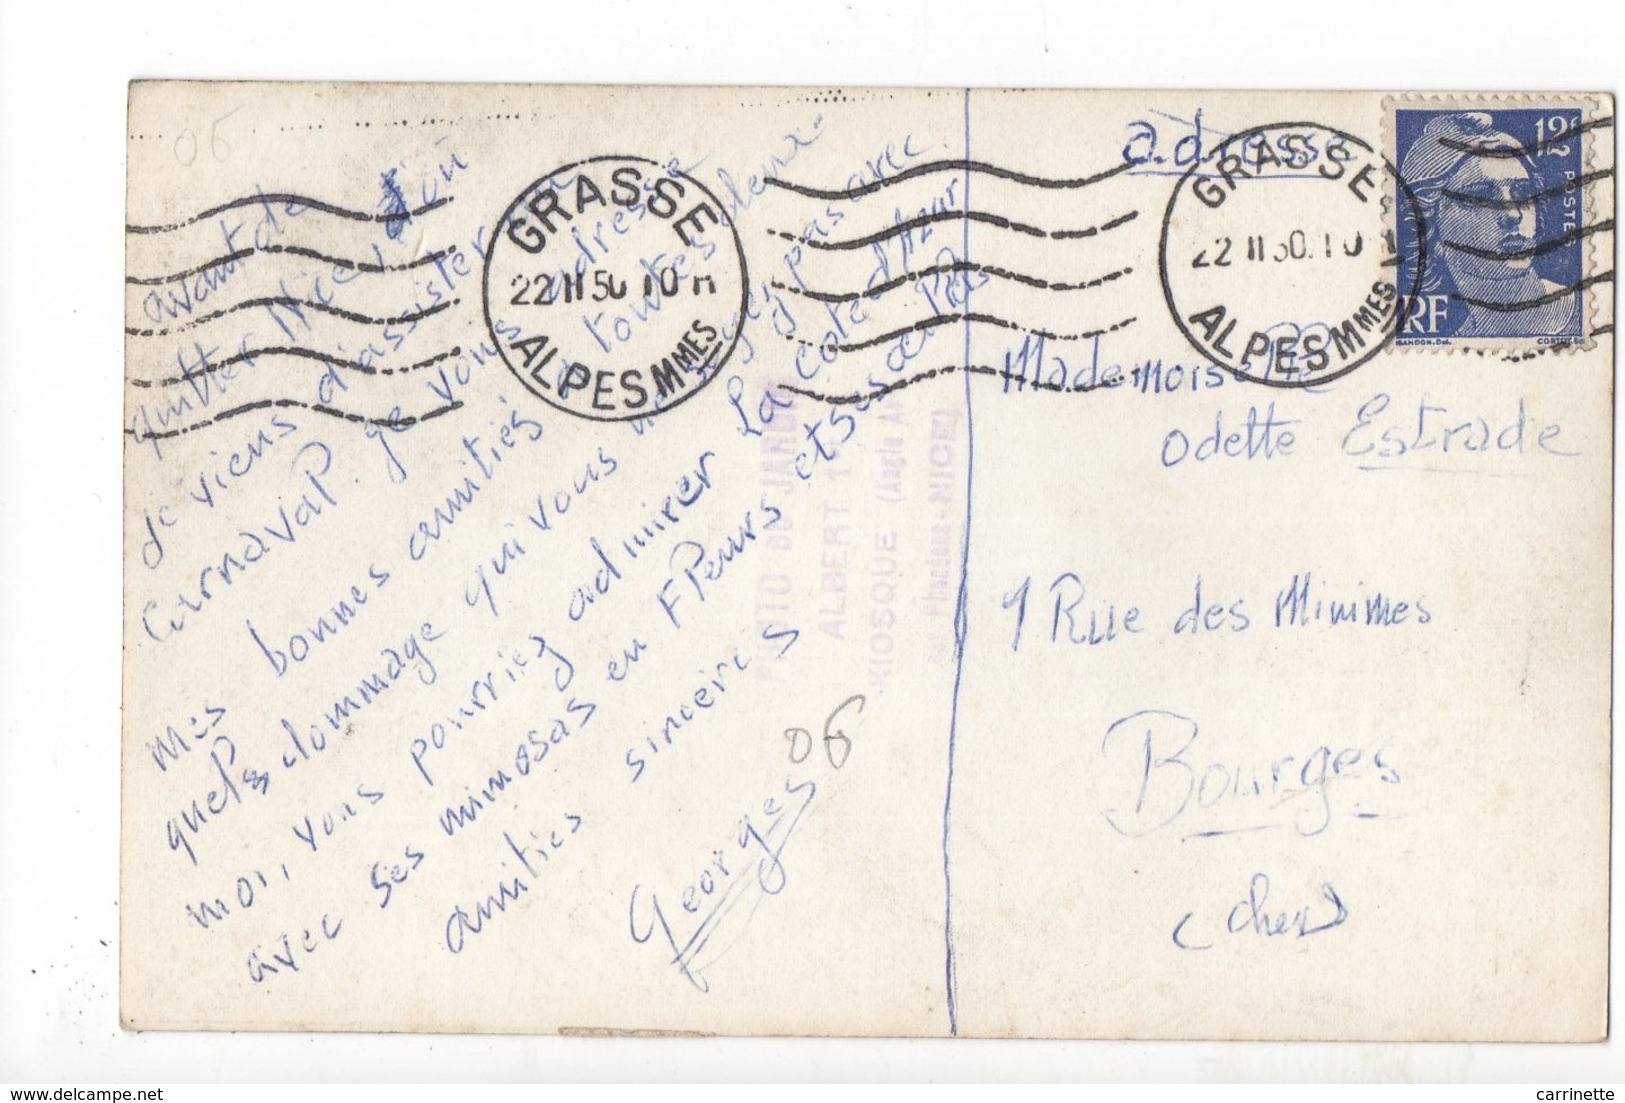 06
avant de
quitter Nice, d'où
je viens d'assister au
Carnaval. je vous adresse
mes bonnes amitiés à toutes
quels dommage qui vous
moi, vous pourriez admirer La cote d'Azur
avec ses mimosas en Fleurs et ses
amities sinceres
Georges
06
GRASSE
22 II 50 10 H
ALPES MMES
PHOTO du JARDIN
ALBERT 1
KIOSQUE (Angle A
Phocéens-NICE)
GRASSE
22 II 50. 10
ALPES MMES
12F
POSTES
RF
GANDON. Del.
adresse
Mademoiselle
Odette Estrade
1 Rue des Minimes
Bourges
(Cher)
delcampe.net
carrinette